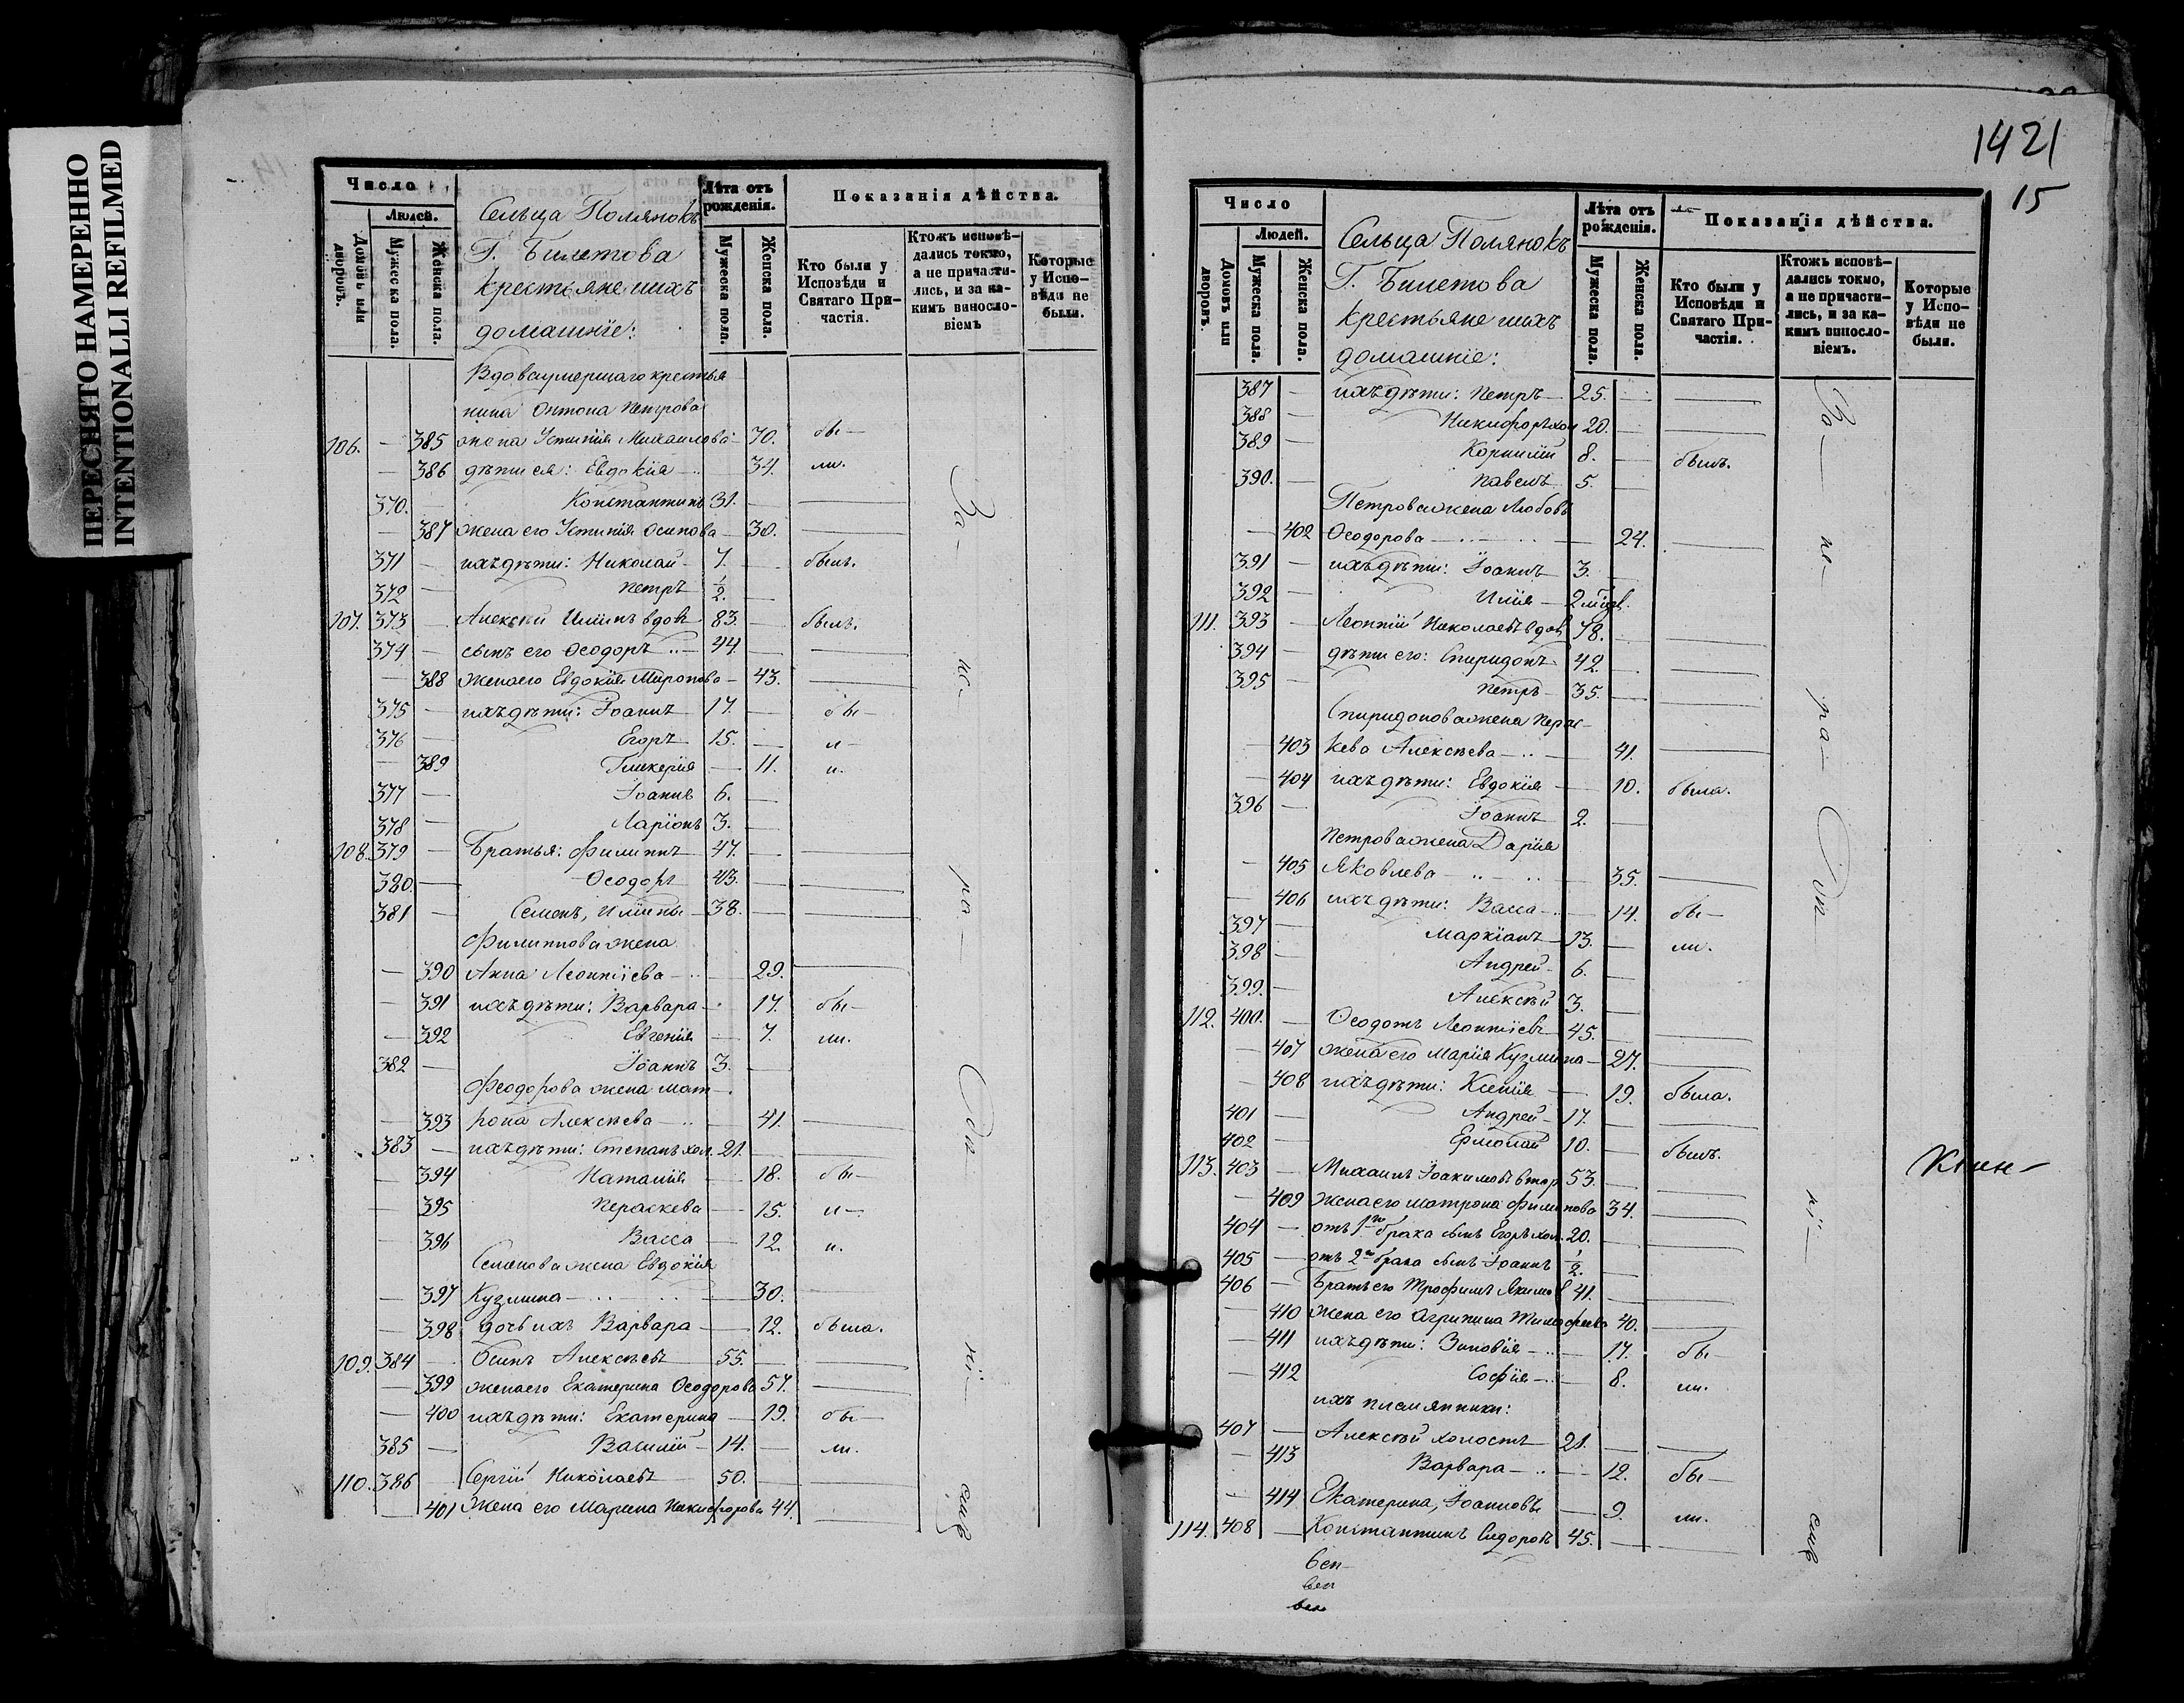 ПЕРЕСНЯТО НАМЕРЕННО
INTENTIONALLI REFILMED
Число
Людей.
Домовъ или дворовъ.
Мужеска пола.
Женска пола.
Сельца Полянокъ
Г. Билетова
крестьяне и ихъ
домашніе:
Лѣта отъ рожденія.
Мужеска пола.
Женска пола.
Показанія дѣйства.
Кто были у Исповѣди и Святаго Причастія.
Ктожъ исповѣдались токмо, а не причастились, и за какимъ винословіемъ
Которые у Исповѣди не были.
Вдова умершаго крестья-
нина Антона Петрова
106. — 385 жена Устинія Михаилова — 70. бы-
— 386 дѣти ея: Евдокія — 34. ли.
370. — Константинъ 31. —
— 387 жена его Устинія Осипова — 30. —
371 — ихъ дѣти: Николай — 7. — былъ.
372 — Петръ 1/2. —
107. 373 — Алексѣй Илiинъ вдов 83. — былъ.
374 — сынъ его Ѳеодоръ — 44. —
— 388 жена его Евдокія Миронова — 43. —
375 — ихъ дѣти: Іоаннъ 17. — бы-
376 — Егоръ 15. — и-
— 389 Гликерія — 11. и.
377 — Іоанн 6. —
378 — Ларіонъ 3. —
108. 379 — Братья: Филиппъ 47. —
380. — Ѳеодоръ 43. —
381 — Семенъ, Илiины — 38. —
Филиппова жена
— 390 Анна Леонтіева — 29. —
— 391 ихъ дѣти: Варвара — 17. бы-
— 392 Евгенія — 7. ли.
382 — Іоаннъ 3. —
Феодорова жена Мат-
— 393 рона Алексѣева — 41. —
383 — ихъ дѣти: Степанъ хол. 21. —
— 394 Наталія — 18. бы-
— 395 Пераскева — 15. и-
— 396 Васса — 12. и.
Семенова жена Евдокія
— 397 Кузмина — 30. —
— 398 дочь ихъ Варвара — 12. была.
109. 384 — Осипъ Алексѣевъ 55. —
— 399 жена его Екатерина Ѳеодорова 57. —
— 400 ихъ дѣти: Екатерина — 19. бы-
385 — Василій — 14. — ли.
110. 386 — Сергій Николаевъ 50. —
— 401 жена его Марина Никифорова 44. —
За-
не-
ра-
Де-
ні-
емъ
1421
15
Число
Людей.
Домовъ или дворовъ.
Мужеска пола.
Женска пола.
Сельца Полянокъ
Г. Билетова
крестьяне и ихъ
домашніе:
Лѣта отъ рожденія.
Мужеска пола.
Женска пола.
Показанія дѣйства.
Кто были у Исповѣди и Святаго Причастія.
Ктожъ исповѣдались токмо, а не причастились, и за какимъ винословіемъ.
Которые у Исповѣди не были.
387 — ихъ дѣти: Петръ — 25. —
388 — Никифоръ хол 20. —
389 — Корнилій 8. — былъ.
390. — Павелъ 5. —
Петрова жена Любовь
— 402 Ѳеодорова — 24. —
391 — ихъ дѣти: Іоаннъ 3. —
392 — Илія — 2 мѣсяц.
111. 393 — Леонтій Николаевъ вдов 78. —
394 — дѣти его: Спиридонъ 42. —
395 — Петръ — 35. —
Спиридонова жена Перас-
— 403 кева Алексѣева — 41. —
— 404 ихъ дѣти: Евдокія — 10. была.
396 — Іоаннъ 2. —
Петрова жена Дарія
— 405 Яковлева — 35. —
— 406 ихъ дѣти: Васса — 14. бы-
397 — Маркіанъ 13. — ли.
398 — Андрей — 6. —
399. — Алексѣй 3. —
112. 400. — Ѳеодотъ Леонтіевъ 45. —
— 407 жена его Марія Кузмина — 27. —
— 408 ихъ дѣти: Ксенія — 19. была.
401 — Андрей — 17. —
402 — Ермолай 10. — былъ.
113. 403 — Михаилъ Іоакимовъ втор 53. —
— 409 жена его Матрона Филипова 34. —
404 — отъ 1го брака сынъ Егоръ хол. 20. —
405 — отъ 2го брака сынъ Іоаннъ 1/2. —
406 — Братъ его Трофимъ Якимов 41. —
— 410 жена его Агрипина Тимофеева 40. —
— 411 ихъ дѣти: Зиновія — 17. бы-
— 412 Софія — 8. ли.
ихъ племянники:
407 — Алексѣй холостъ 21. —
— 413 Варвара — 12. бы-
— 414 Екатерина, Іоанновы — 9. ли.
114. 408 — Константинъ Сидоровъ 45. —
За-
не-
ра-
Де-
ні-
емъ